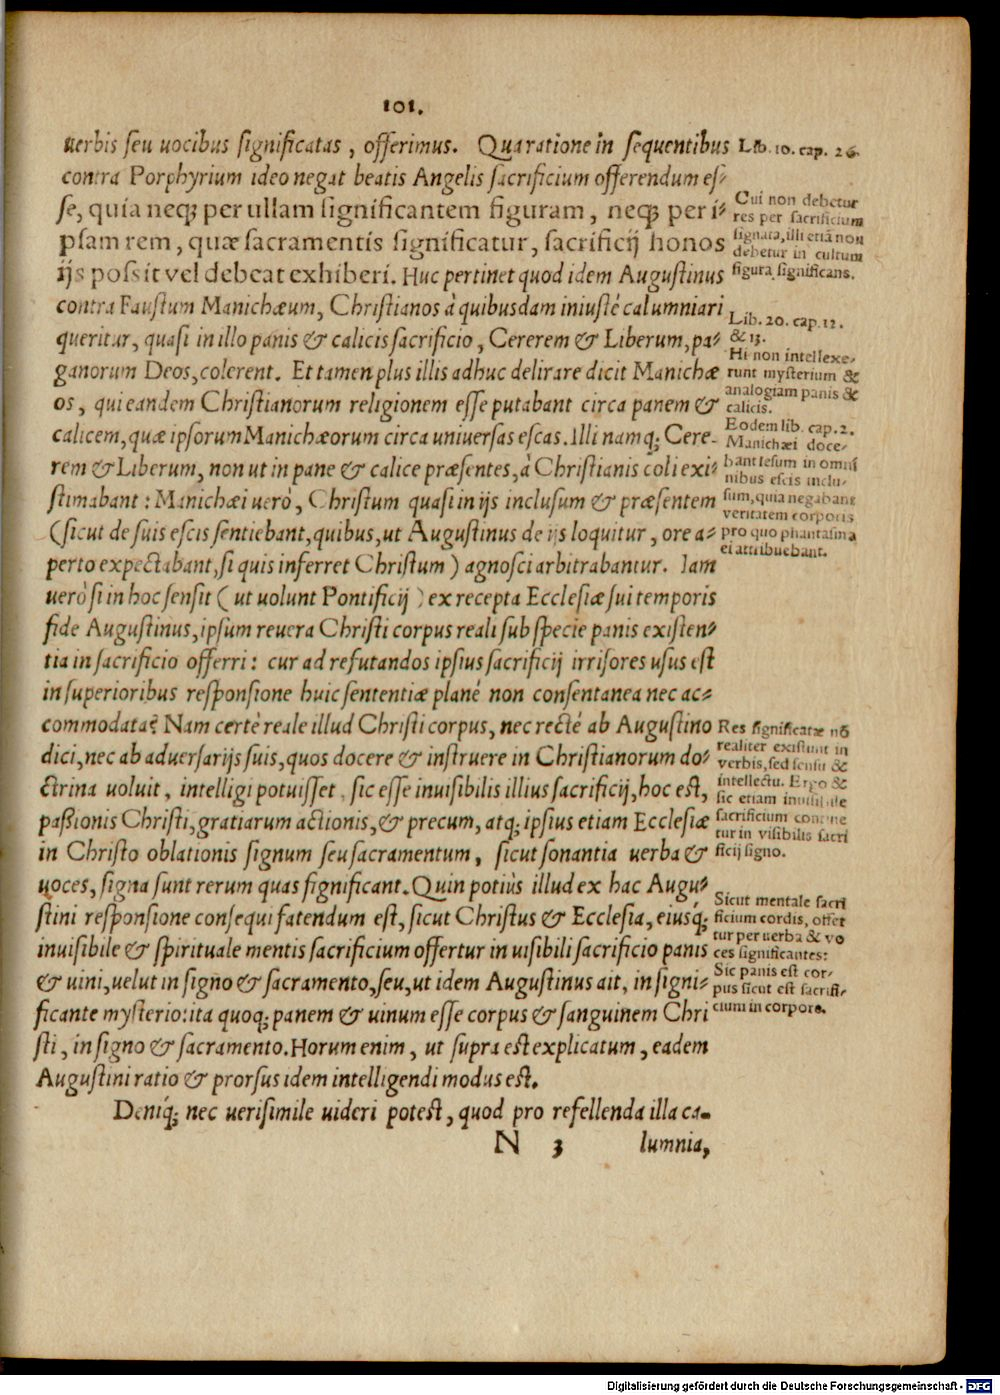 101.
uerbis seu uocibus significatas, offerimus. Qua ratione in sequentibus
contra Porphyrium ideo negat beatis Angelis sacrificium offerendum es-
se, quia neq; per ullam significantem figuram, neq; per i-
psam rem, quæ sacramentis significatur, sacrificij honos
ijs possit vel debeat exhiberi. Huc pertinet quod idem Augustinus
contra Faustum Manichæum, Christianos à quibusdam iniustè calumniari
queritur, quasi in illo panis & calicis sacrificio, Cererem & Liberum, pa-
ganorum Deos, colerent. Et tamen plus illis adhuc delirare dicit Manichæ
os, qui eandem Christianorum religionem esse putabant circa panem &
calicem, quæ ipsorum Manichæorum circa uniuersas escas. Illi namq; Cere-
rem & Liberum, non ut in pane & calice præsentes, à Christianis coli exi-
stimabant: Manichæi uerò, Christum quasi in ijs inclusum & præsentem
(sicut de suis escis sentiebant, quibus, ut Augustinus de ijs loquitur, ore a-
perto expectabant, si quis inferret Christum) agnosci arbitrabantur. Iam
uerò si in hoc sensit (ut uolunt Pontificij) ex recepta Ecclesiæ sui temporis
fide Augustinus, ipsum reuera Christi corpus reali sub specie panis existen-
tia in sacrificio offerri: cur ad refutandos ipsius sacrificij irrisores usus est
in superioribus responsione huic sententiæ planè non consentanea nec ac-
commodata? Nam certè reale illud Christi corpus, nec rectè ab Augustino
dici, nec ab aduersarijs suis, quos docere & instruere in Christianorum do-
ctrina uoluit, intelligi potuisset, sic esse inuisibilis illius sacrificij, hoc est,
passionis Christi, gratiarum actionis, & precum, atq; ipsius etiam Ecclesiæ
in Christo oblationis signum seu sacramentum, sicut sonantia uerba &
uoces, signa sunt rerum quas significant. Quin potiùs illud ex hac Augu-
stini responsione consequi fatendum est, sicut Christus & Ecclesia, eiusq́;
inuisibile & spirituale mentis sacrificium offertur in uisibili sacrificio panis
& uini, uelut in signo & sacramento, seu, ut idem Augustinus ait, in signi-
ficante mysterio: ita quoq; panem & uinum esse corpus & sanguinem Chri
sti, in signo & sacramento. Horum enim, ut supra est explicatum, eadem
Augustini ratio & prorsus idem intelligendi modus est.
Deniq́; nec uerisimile uideri potest, quod pro refellenda illa ca-
N 3 lumnia,
Lib. 10. cap. 26.
Cui non debetur
res per sacrificium
signata, illi etiā non
debetur in cultum
figura significans.
Lib. 20. cap. 12.
& 13.
Hi non intellexe-
runt mysterium &
analogiam panis &
calicis.
Eodem lib. cap. 2.
Manichæi doce-
bant Iesum in omni
nibus escis inclu-
sum, quia negabant
veritatem corporis
pro quo phantasma
ei attribuebant.
Res significatæ nō
realiter existunt in
verbis, sed sensu &
intellectu. Ergo &
sic etiam inuisibile
sacrificium contine
tur in visibilis sacri
ficij signo.
Sicut mentale sacri
ficium cordis, offer
tur per uerba & vo
ces significantes:
Sic panis est cor-
pus sicut est sacrifi-
cium in corpore.
Digitalisierung gefördert durch die Deutsche Forschungsgemeinschaft - DFG